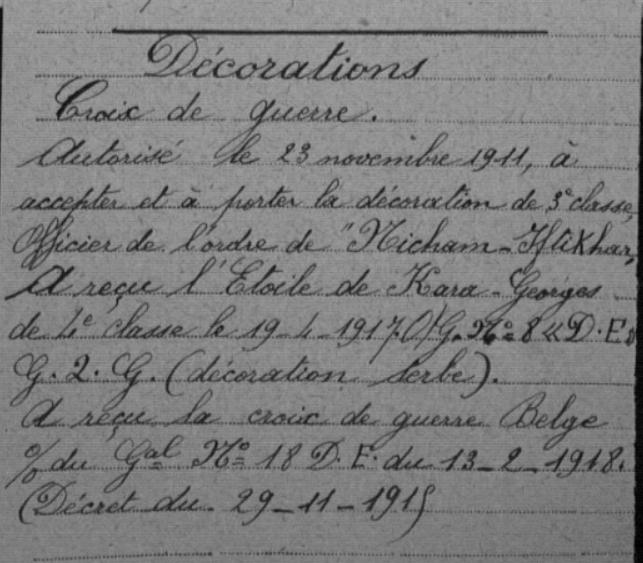 Décorations
Croix de guerre.
Autorisé le 23 novembre 1911, à
accepter et à porter la décoration de 3e classe,
Officier de l'ordre de "Nicham-Iftikhar,
A reçu l'Etoile de Kara-Georges
de 4e classe le 19-4-1917. O/G. No 8 «D.E»
G.Q.G. (décoration serbe).
A reçu la croix de guerre Belge
% du Gal No 18 D.E. du 13-2-1918.
(Décret du 29-11-191